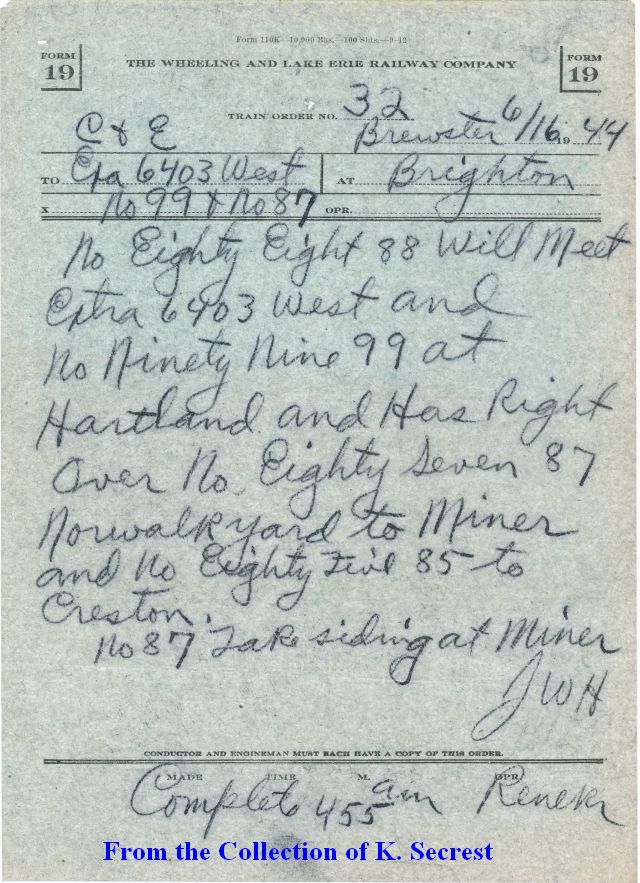 Form 110K—10,000 Bks.—100 Shts.—9-42
FORM 19
THE WHEELING AND LAKE ERIE RAILWAY COMPANY
FORM 19
TRAIN ORDER NO. 32
C & E Brewster 6/16 1944
TO Exa 6403 West AT Brighton
X No 99 & No 87 OPR.
No Eighty Eight 88 Will Meet
Extra 6403 West and
No Ninety Nine 99 at
Hartland and Has Right
Over No. Eighty Seven 87
Norwalk yard to Miner
and No Eighty Five 85 to
Creston.
No 87 Take siding at Miner
JWH
CONDUCTOR AND ENGINEMAN MUST EACH HAVE A COPY OF THIS ORDER.
MADE TIME M. OPR.
Complete 455 am
From the Collection of K. Secrest